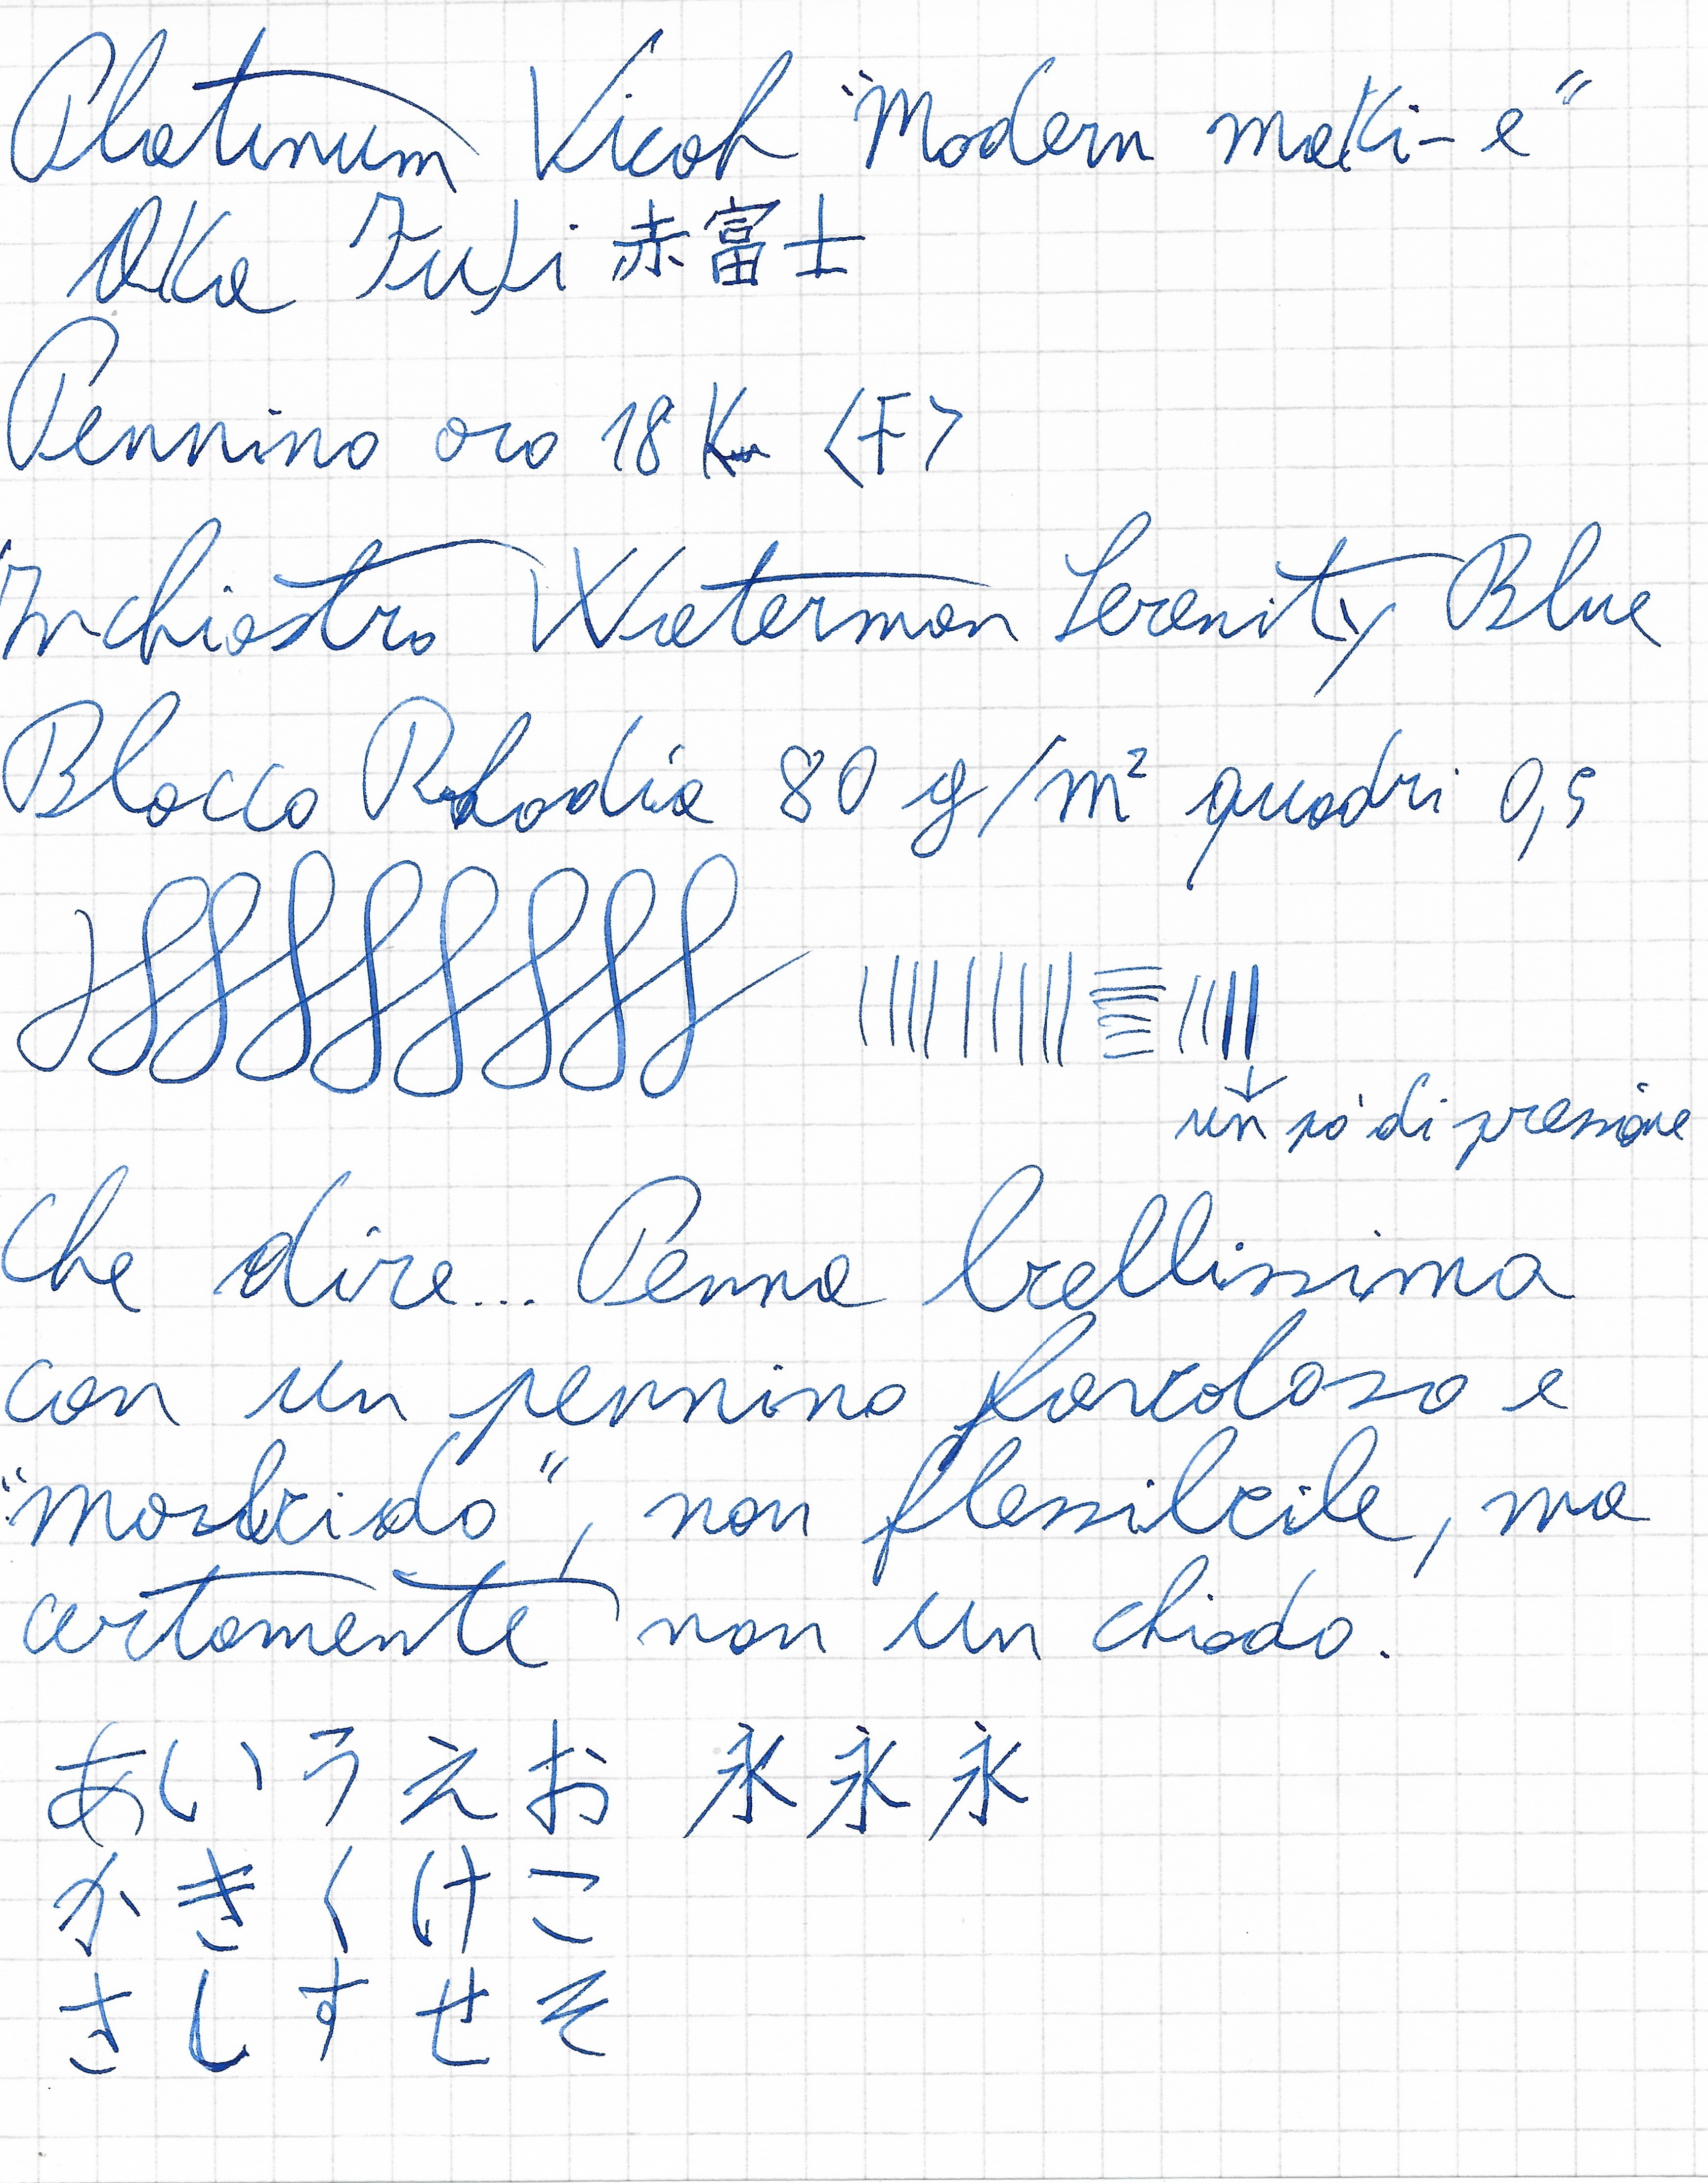 Platinum Kicoh "Modern maki-e"
Aka Fuji 赤富士
Pennino oro 18 K <F>
Inchiostro Waterman Serenity Blue
Blocco Rhodia 80 g/m² quadri 0,5
un pò di pressione
Che dire... Penna bellissima
con un pennino favoloso e
"morbido", non flessibile, ma
certamente non un chiodo.
あいうえお 永永永
かきくけこ
さしすせそ